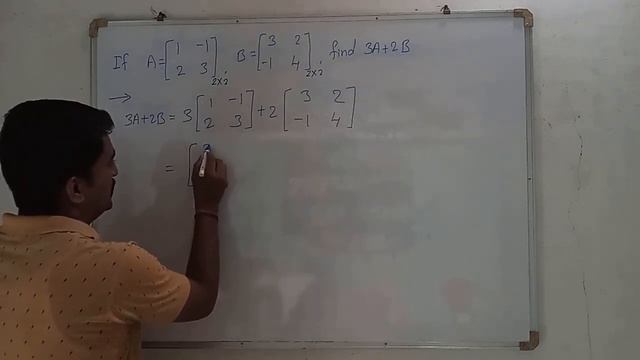 If A = [1 -1 2 3]2×2 ; B = [3 2 -1 4]2×2 ; find 3A+2B
→
3A+2B = 3 [1 -1 2 3] + 2 [3 2 -1 4]
= [3